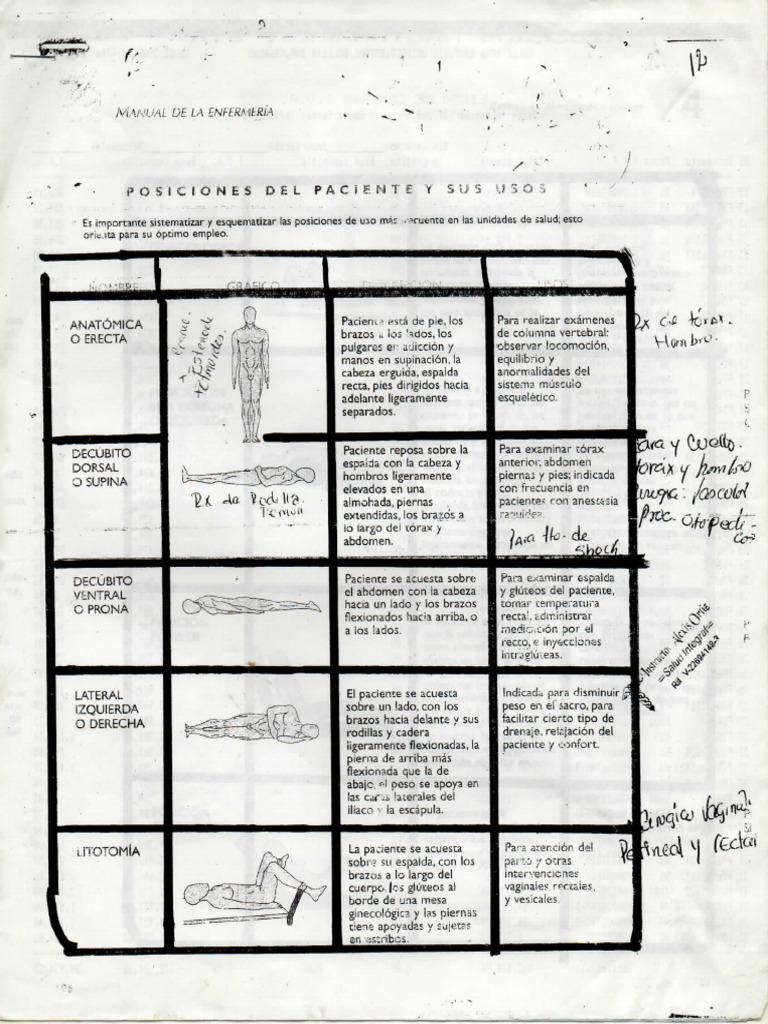 12
MANUAL DE LA ENFERMERÍA
POSICIONES DEL PACIENTE Y SUS USOS
Es importante sistematizar y esquematizar las posiciones de uso más frecuente en las unidades de salud; esto
orienta para su óptimo empleo.
NOMBRE GRÁFICO DESCRIPCIÓN USOS
ANATÓMICA
O ERECTA
Paciente está de pie, los
brazos a los lados, los
pulgares en adicción y
manos en supinación, la
cabeza erguida, espalda
recta, pies dirigidos hacia
adelante ligeramente
separados.
Para realizar exámenes
de columna vertebral:
observar locomoción,
equilibrio y
anormalidades del
sistema músculo
esquelético.
Rx de tórax.
Hombro.
DECÚBITO
DORSAL
O SUPINA
Rx de Rodilla.
Paciente reposa sobre la
espalda con la cabeza y
hombros ligeramente
elevados en una
almohada, piernas
extendidas, los brazos a
lo largo del tórax y
abdomen.
Para examinar tórax
anterior, abdomen
piernas y pies; indicada
con frecuencia en
pacientes con anestesia
raquídea.
Para tto. de
shock
Cara y Cuello.
toráx y hombro
vascular
Proc. otopedi-
cos
DECÚBITO
VENTRAL
O PRONA
Paciente se acuesta sobre
el abdomen con la cabeza
hacia un lado y los brazos
flexionados hacia arriba, o
a los lados.
Para examinar espalda
y glúteos del paciente,
tomar temperatura
rectal, administrar
medicación por el
recto, e inyecciones
intraglúteas.
Instructor Alexis Ortiz
=Salud Integral=
LATERAL
IZQUIERDA
O DERECHA
El paciente se acuesta
sobre un lado, con los
brazos hacia delante y sus
rodillas y cadera
ligeramente flexionadas, la
pierna de arriba más
flexionada que la de
abajo, el peso se apoya en
las caras laterales del
ilíaco y la escápula.
Indicada para disminuir
peso en el sacro, para
facilitar cierto tipo de
drenaje, relajación del
paciente y confort.
LITOTOMÍA
La paciente se acuesta
sobre su espalda, con los
brazos a lo largo del
cuerpo, los glúteos al
borde de una mesa
ginecológica y las piernas
tiene apoyadas y sujetas
en estribos.
Para atención del
parto y otras
intervenciones
vaginales rectales,
y vesicales.
Cirugica Vaginal
Perineal y rectal